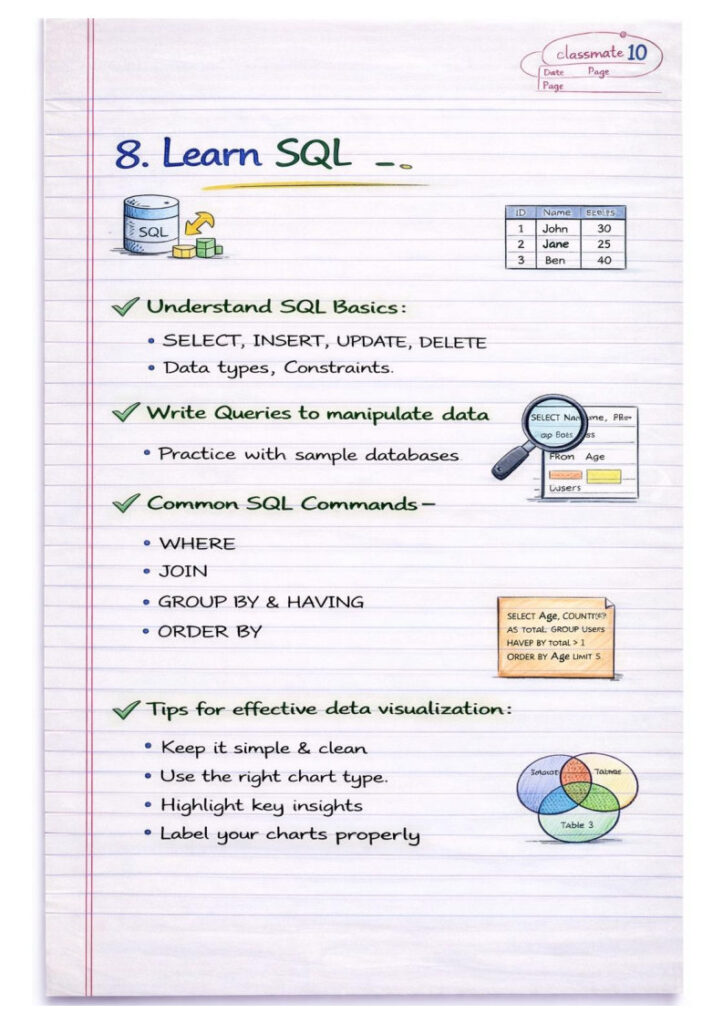 classmate 10
Date Page
Page
8. Learn SQL
SQL
ID Name
1 John 30
2 Jane 25
3 Ben 40
Understand SQL Basics:
• SELECT, INSERT, UPDATE, DELETE
• Data types, Constraints.
Write Queries to manipulate data
• Practice with sample databases
SELECT
FRom Age
Common SQL Commands –
• WHERE
• JOIN
• GROUP BY & HAVING
• ORDER BY
SELECT Age,
AS TOTAL. GROUP Users
HAVEP BY TOTAL > 1
ORDER BY Age LIMIT 5
Tips for effective deta visualization:
• Keep it simple & clean
• Use the right chart type.
• Highlight key insights
• Label your charts properly
Table 3